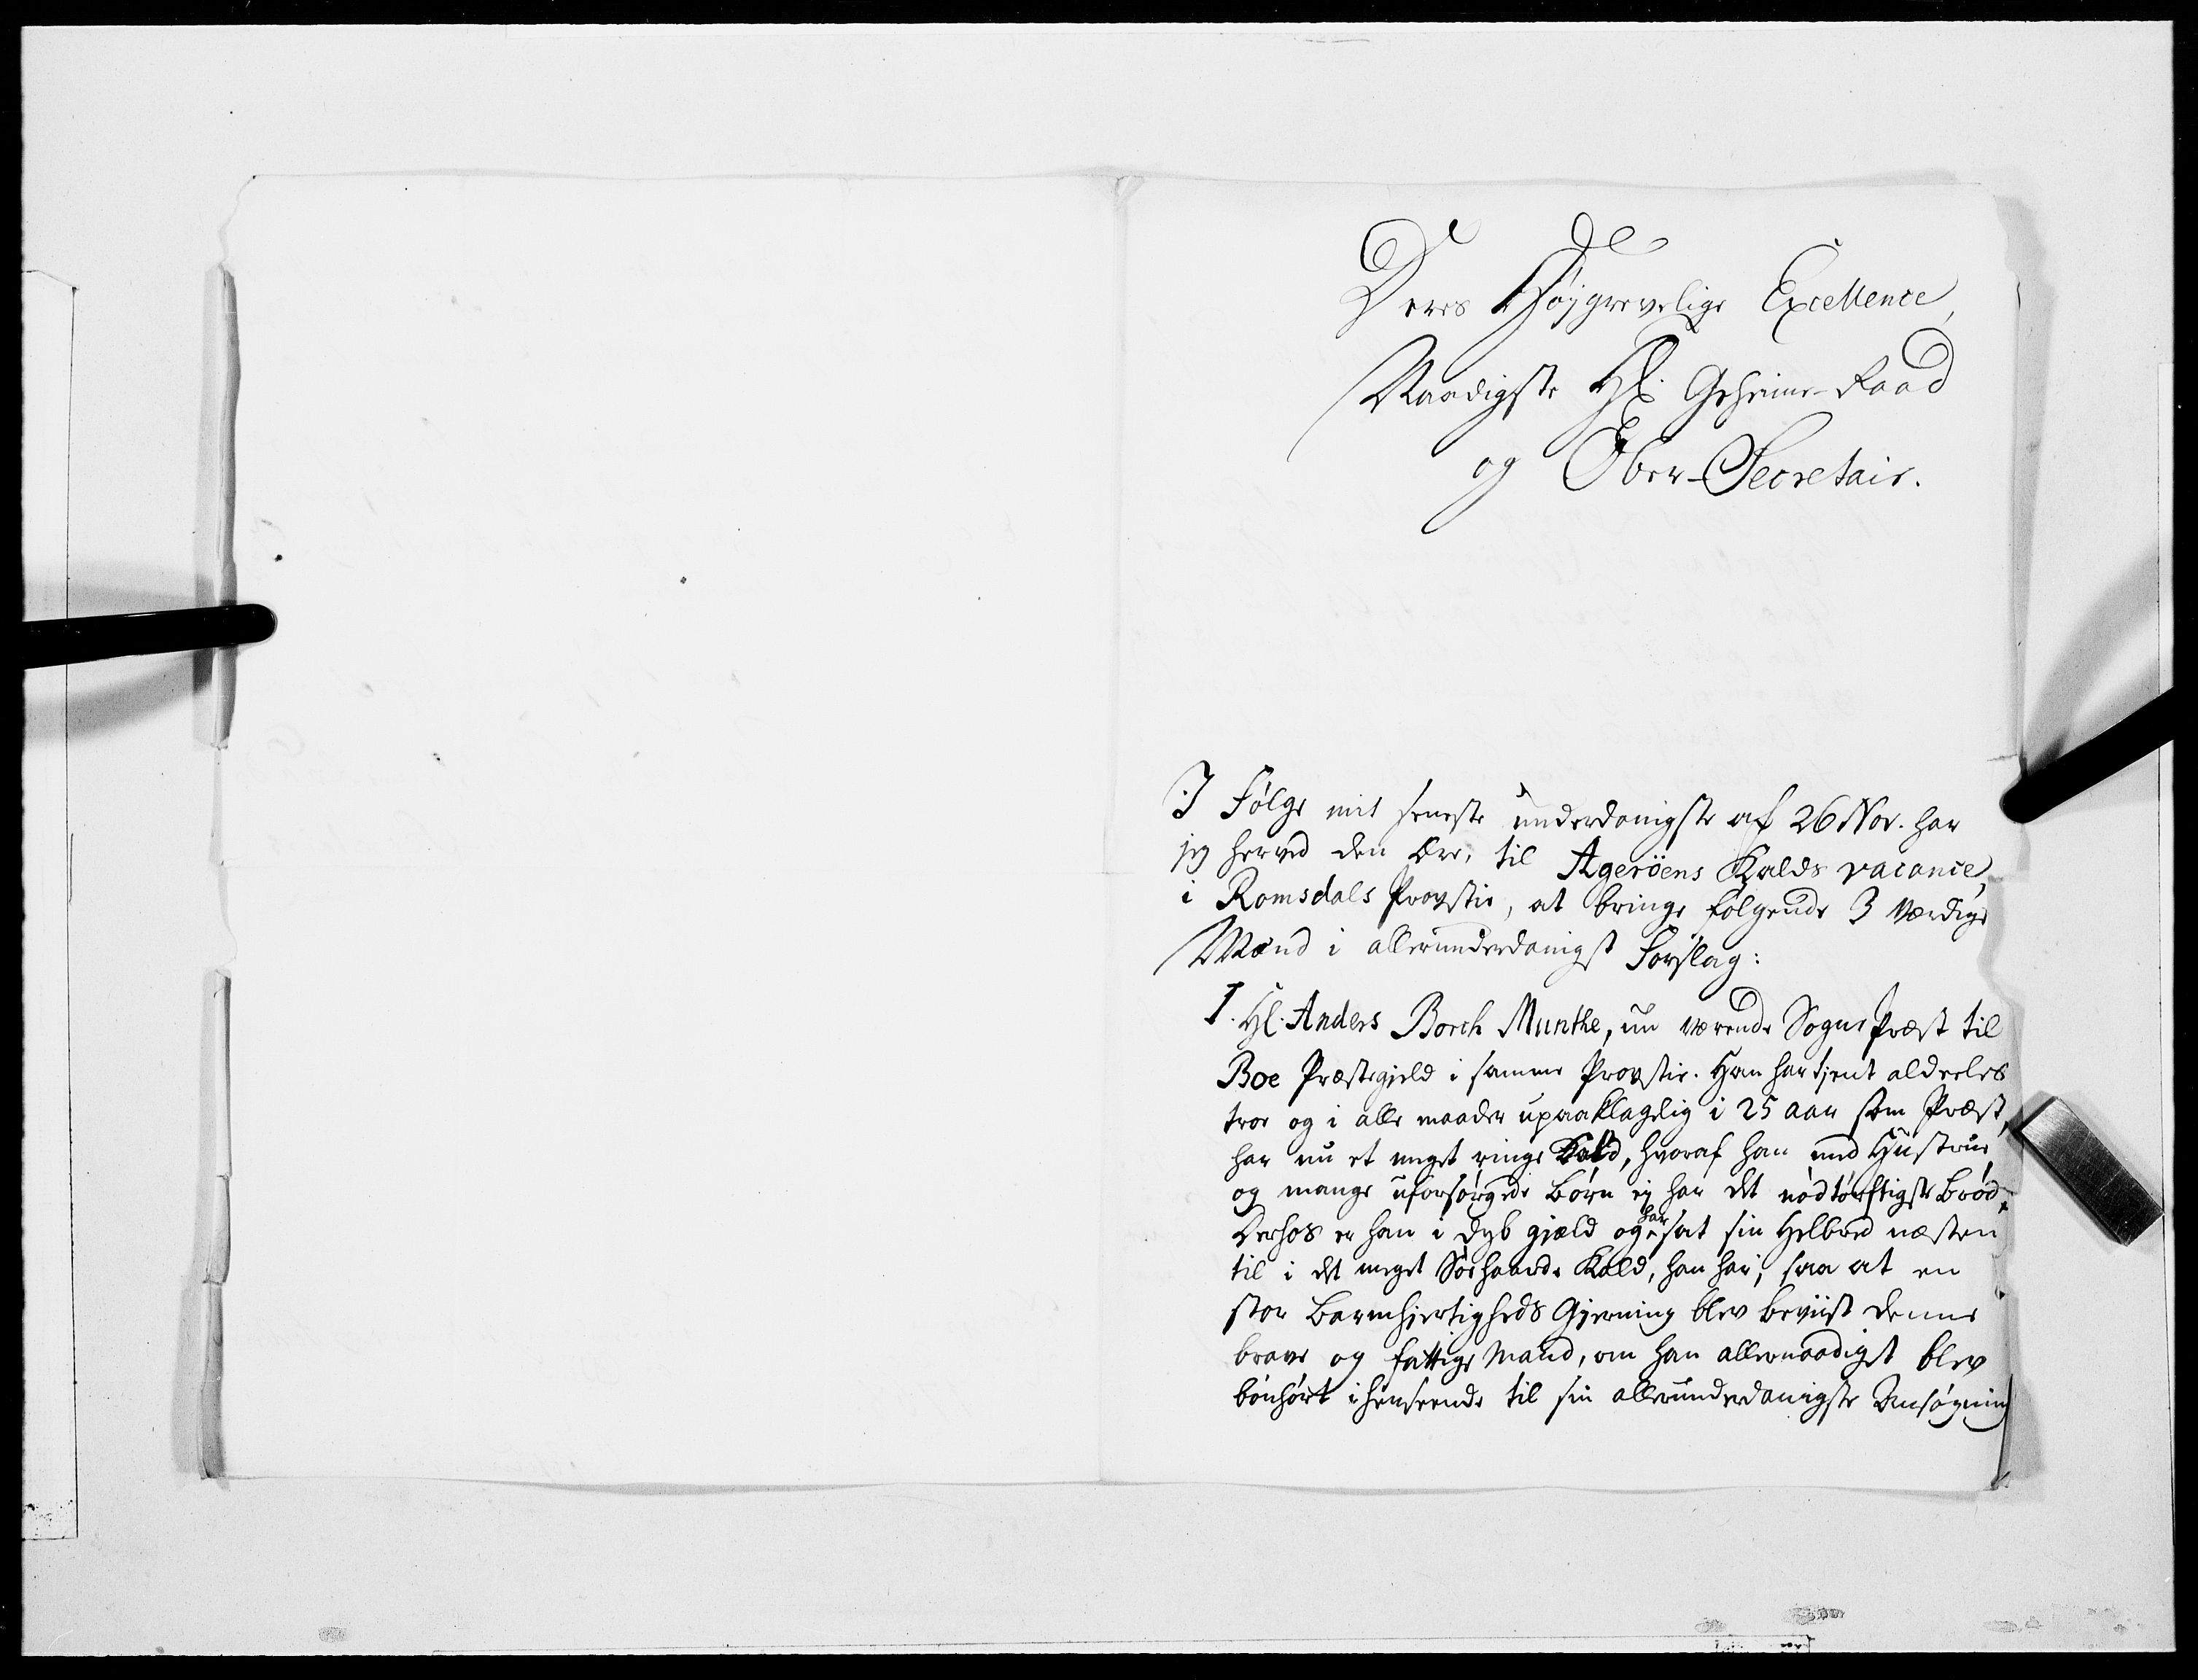 Deres Højgrevelige Excellence,
Naadigste Hl. Geheime-Raad
og Ober-Secretair.
I Følge mit seneste underdanigste af 26 Nov. har
jeg herved den Ære, til Agerøens Kalds vacance,
i Romsdals Provstie, at bringe følgende 3 værdige
Mænd i allerunderdanigst Forslag:
1. Hl. Anders Borch Munthe, nu værende Sogne Præst til
Boe Præstegjeld i samme Provstie. Han har tjent aldeeles
troe og i alle maader upaaklagelig i 25 aar som Præst,
har nu et meget ringe Kald, hvoraf han med Hustrue
og mange uforsørgede Børn ej har det nødtørftigste Brød.
Derhos er han i dyb gjæld og har sat sin Helbred næsten
til i det meget Søehaarde Kald, han har; saa at en
stor Barmhjertigheds Gjerning blev beviist denne
brave og fattige Mand, om han allernaadigst blev
bønhørt i henseende til sin allerunderdanigste Ansøgning